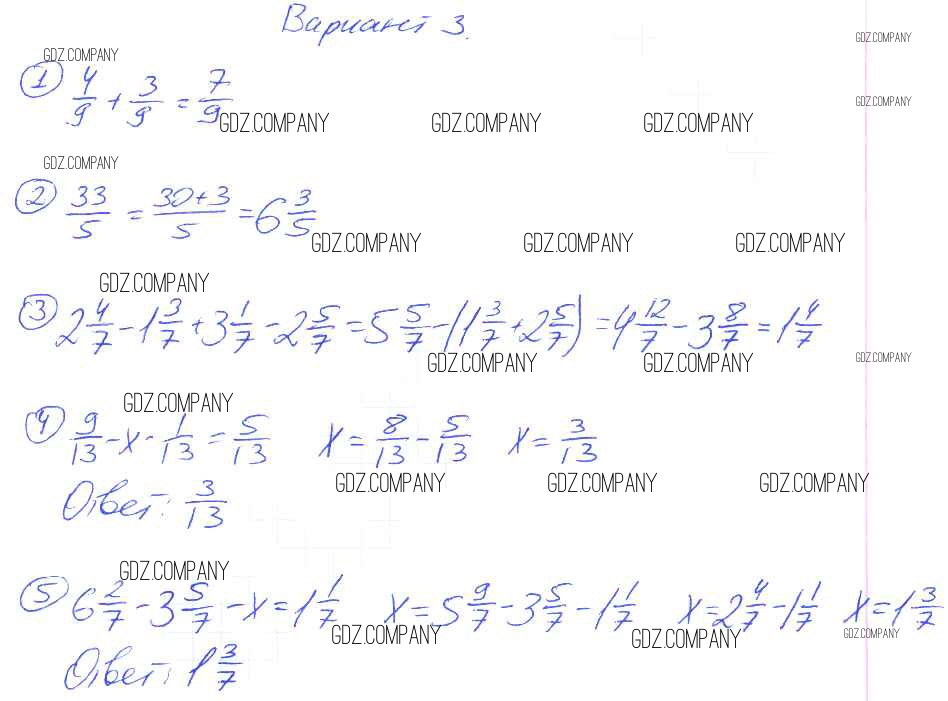 Вариант 3.
GDZ.COMPANY GDZ.COMPANY
① 4/9 + 3/9 = 7/9 GDZ.COMPANY
GDZ.COMPANY GDZ.COMPANY GDZ.COMPANY
GDZ.COMPANY
② 33/5 = 30+3/5 = 6 3/5
GDZ.COMPANY GDZ.COMPANY GDZ.COMPANY
GDZ.COMPANY
③ 2 4/7 - 1 3/7 + 3 1/7 - 2 5/7 = 5 5/7 - (1 3/7 + 2 5/7) = 4 12/7 - 3 8/7 = 1 4/7
GDZ.COMPANY GDZ.COMPANY GDZ.COMPANY
GDZ.COMPANY
④ 9/13 - x - 1/13 = 5/13 x = 8/13 - 5/13 x = 3/13
GDZ.COMPANY GDZ.COMPANY GDZ.COMPANY
Ответ: 3/13
GDZ.COMPANY
⑤ 6 2/7 - 3 5/7 - x = 1 1/7 x = 5 9/7 - 3 5/7 - 1 1/7 x = 2 4/7 - 1 1/7 x = 1 3/7
GDZ.COMPANY GDZ.COMPANY GDZ.COMPANY
Ответ: 1 3/7